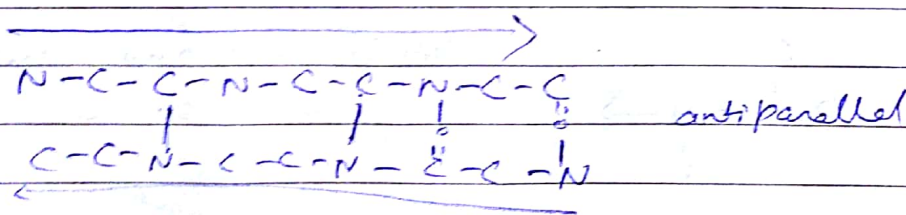 N-C-C-N-C-C-N-C-C
antiparallel
O O
C-C-N-C-C-N-C-C-N